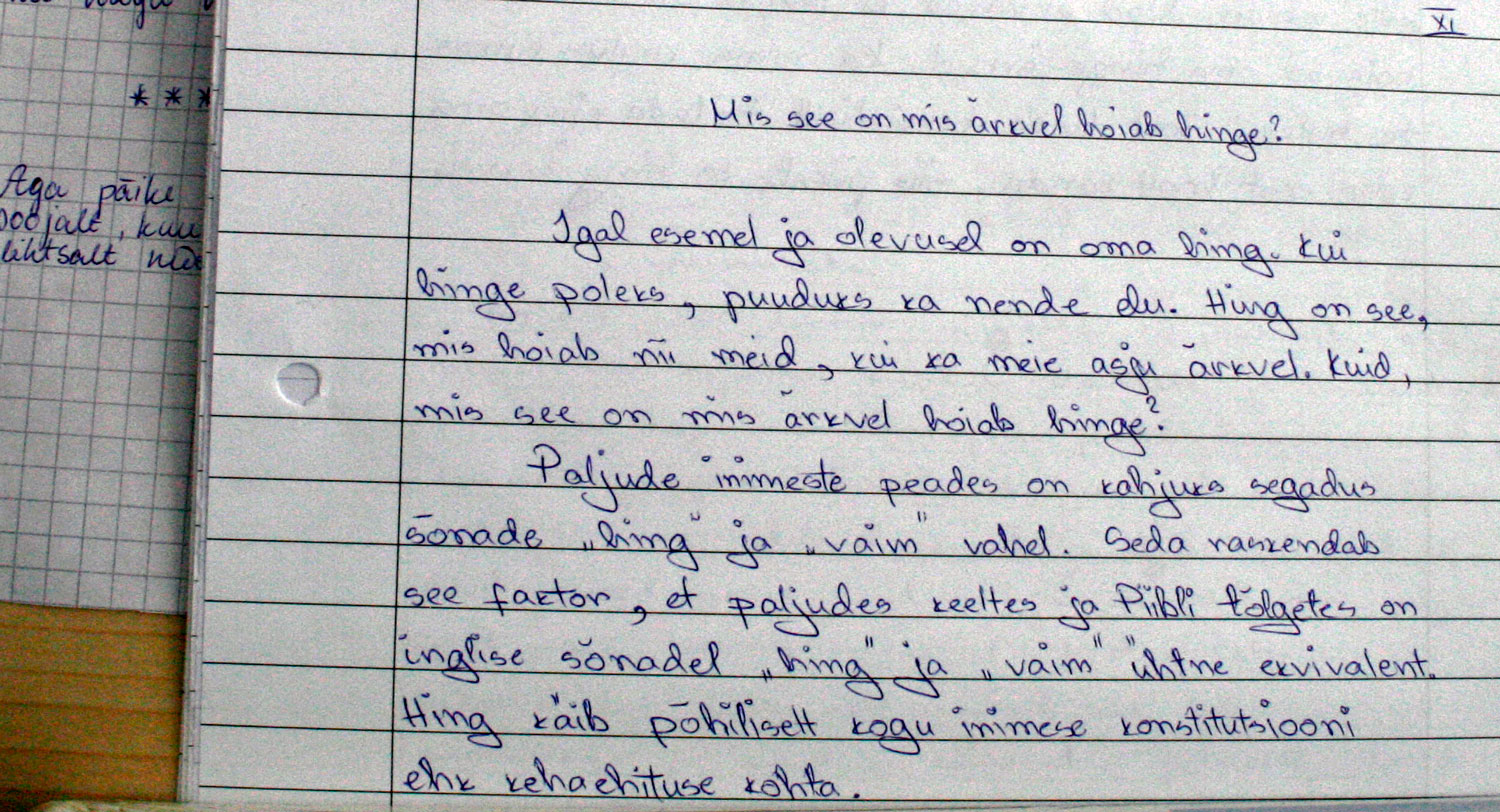 * * *
Aga päike
kuu
lihtsalt
XI
Mis see on mis ärkvel hoiab hinge?
Igal esemel ja olevusel on oma hing. Kui
hinge poleks, puuduks ka nende elu. Hing on see,
mis hoiab nii meid, kui ka meie asju ärkvel. Kuid,
mis see on mis ärkvel hoiab hinge?
Paljude inimeste peades on kahjuks segadus
sõnade „hing" ja „vaim" vahel. Seda raskendab
see faktor, et paljudes keeltes ja Piibli tõlgetes on
inglise sõnadel „hing" ja „vaim" ühtne ekvivalent.
Hing käib põhiliselt kogu inimese konstitutsiooni
ehk kehaehituse kohta.